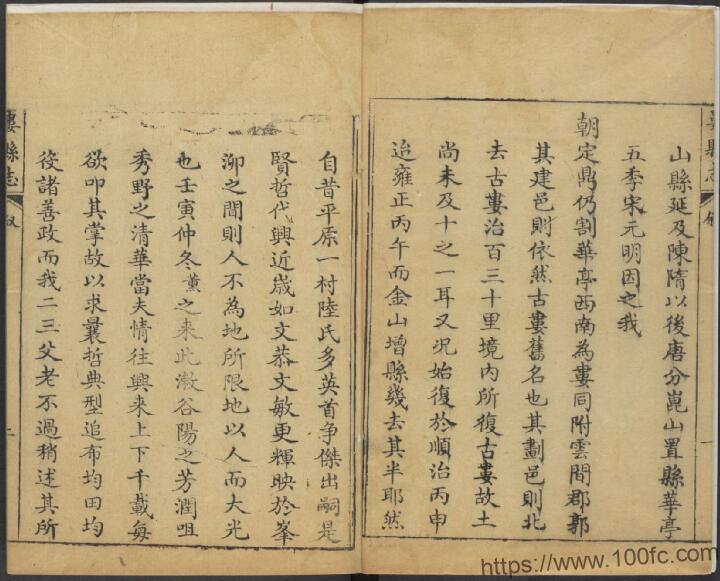 山縣延及陳隋以後唐分崑山置縣華亭
五季宋元明因之我
朝定鼎仍割華亭西南為婁同附雲間郡郭
其建邑則依然古婁舊名也其劃邑則北
去古婁治百三十里境內所復古婁故土
尚未及十之一耳又况始復於順治丙申
迨雍正丙午而金山增縣幾去其半耶然
自昔平原一村陸氏多英首爭傑出嗣是
賢哲代興近歲如文恭文敏更輝映於峯
泖之間則人不為地所限地以人而大光
也壬寅仲冬薰之來此漱谷陽之芳潤咀
秀野之清華當夫情往興来上下千載每
欲叩其掌故以求曩哲典型追布均田均
役諸善政而我二三父老不過稍述其所
婁縣志
叙
一
婁縣志
一
https://www.100fc.com